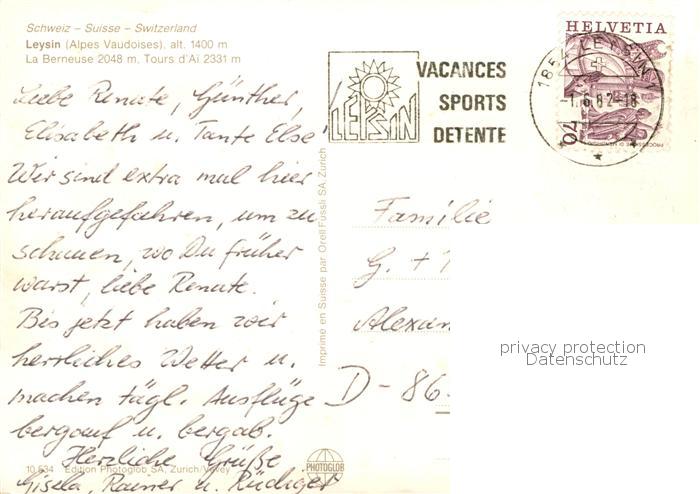 Schweiz – Suisse – Switzerland
Leysin (Alpes Vaudoises), alt. 1400 m
La Berneuse 2048 m, Tours d'Aï 2331 m
Liebe Renate, Günther,
Elisabeth u. Tante Else!
Wir sind extra mal hier
heraufgefahren, um zu
schauen, wo Du früher
warst, liebe Renate.
Bis jetzt haben wir
herrliches Wetter u.
machen tägl. Ausflüge
bergauf u. bergab.
Herzliche Grüße
Gisela, Rainer u. Rüdiger
10.534 Edition Photoglob SA, Zurich/Vevey
PHOTOGLOB
Imprimé en Suisse par Orell Füssli SA, Zurich
LEYSIN
VACANCES
SPORTS
DETENTE
1854 LEYSIN 1
-1.6.82-18
HELVETIA
70
Familie
G. +
Alexan
D-86
privacy protection
Datenschutz